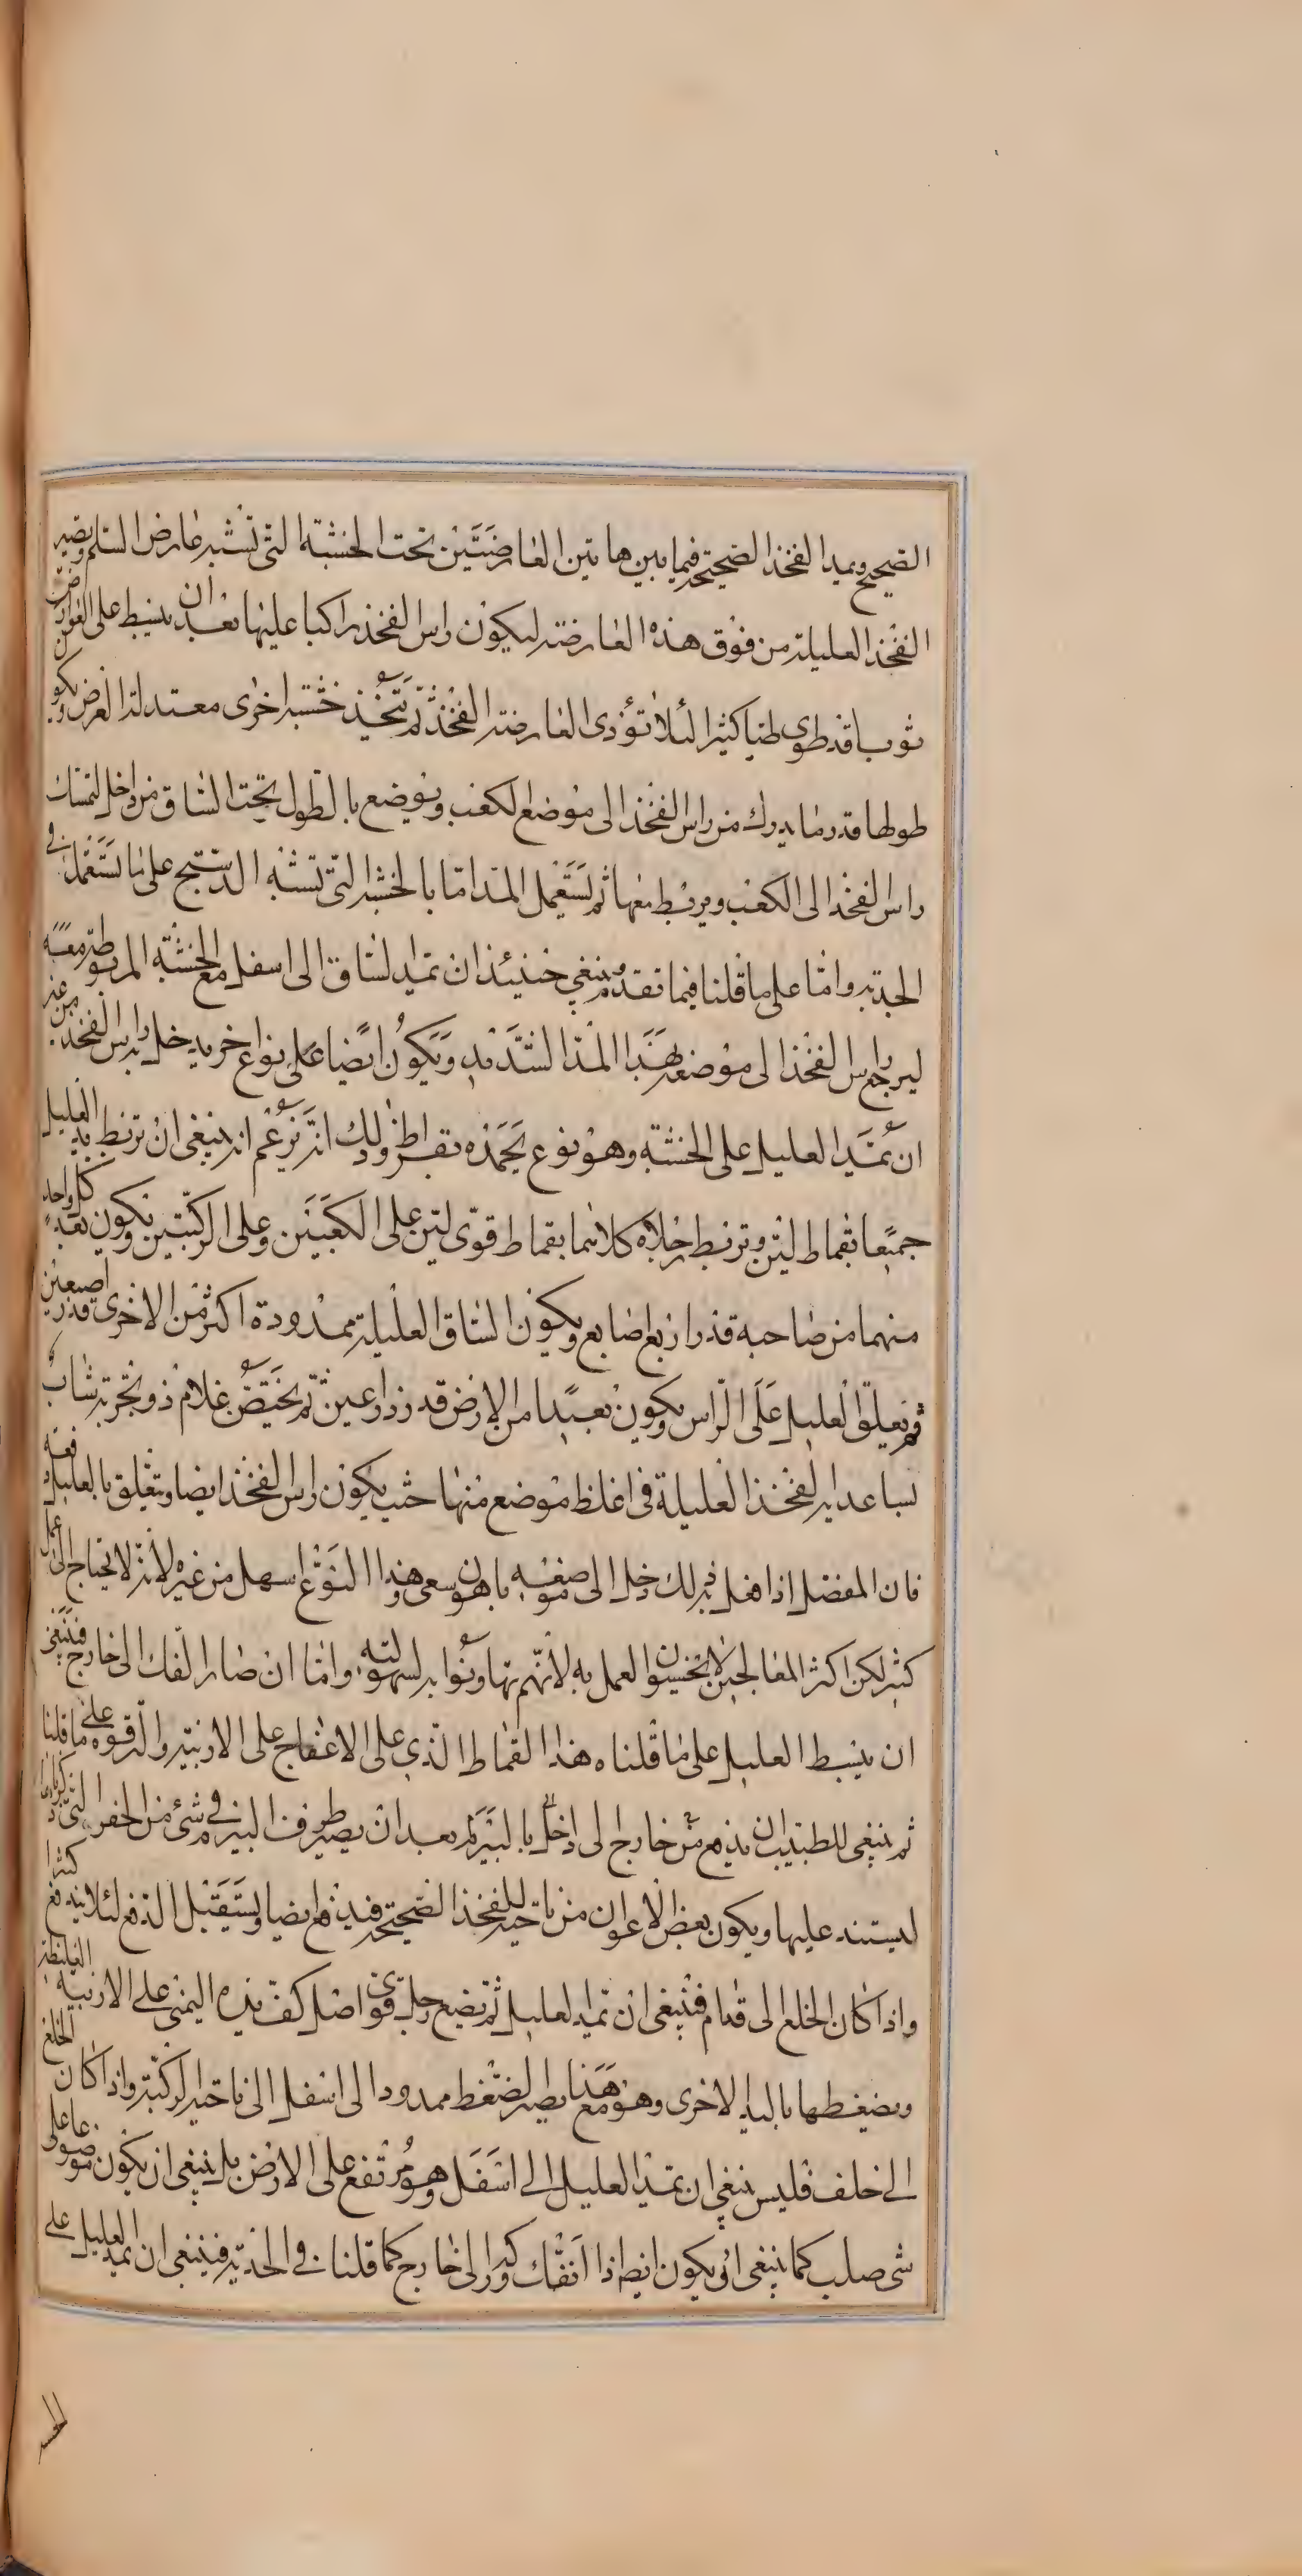 الصحيح ويمد الفخذ الصحيحة فيما بين هاتين العارضتين تحت الخشبة التى تشبه عارض السلم ويصير
الفخذ العليلة من فوق هذه العارضة ليكون راس الفخذ راكبا عليها بعد ان ينبسط على العوارض
ثوب قد طوى طيا كثيرا لئلا تؤذى العارضة الفخذ ثم يتخذ خشبة اخرى معتدلة العرض ويكون
طولها قدر ما يدرك من راس الفخذ الى موضع الكعب ويوضع بالطول تحت الساق من داخل لتمسك
راس الفخذ الى الكعب ويربط معها ثم يستعمل المد اما بالخشبة التى تشبه الدستبج على ما يستعمل فى
الحدبة واما على ما قلنا فيما تقدم وينبغي حينئذ ان تمد الساق الى اسفل مع الخشبة المربوطة معه
ليرجع راس الفخذ الى موضعه بهذا المد الشديد ويكون ايضا على نوع اخر يدخل به راس الفخذ من غير
ان يمد العليل على الخشبة وهو نوع يحمده بقراط وذلك انه يزعم انه ينبغى ان تربط يد العليل
جميعا بقماط لين وتربط رجلاه كلاهما بقماط قوى لين على الكعبين وعلى الركبتين ويكون بعد كل واحد
منهما من صاحبه قدر اربع اصابع ويكون الساق العليلة ممدودة اكثر من الاخرى قدر اصبعين
ثم يعلق العليل على الراس ويكون بعيدا من الارض قدر ذراعين ثم يحتضن غلام ذو تجربة شاب
بساعديه الفخذ العليلة فى اغلظ موضع منها حيث يكون راس الفخذ ايضا ويتعلق بالعليل دفعه
فان المفصل اذا فعل به ذلك دخل الى موضعه باهون سعى وهذا النوع اسهل من غيره لانه لا يحتاج الى عمل
كثير لكن اكثر المعالجين لا يحسنون العمل به لانهم تهاونوا به لسهولته واما ان صار الفك الى خارج فينبغى
ان ينبسط العليل على ما قلناه هذا القماط الذي على الاعفاج على الاربية والترقوة على ما قلنا
ثم ينبغي للطبيب ان يدفع من خارج الى داخل بالبيرم بعد ان يصير طرف البيرم في شئ من الحفر التى
ليستند عليها ويكون بعض الاعوان من ناحية الفخذ الصحيحة فيدفع ايضا ويستقبل الدفع لئلا يندفع كثيرا
واذا كان الخلع الى قدام فينبغى ان تمد العليل ثم يضع رجل قوى اصل كف يده اليمنى على الاربية العليلة
ويضغطها باليد الاخرى وهو مع هذا يصير الضغط ممدودا الى اسفل الى ناحية الركبة واذا كان الخلع
الى خلف فليس ينبغي ان يمد العليل الى اسفل وهو مرتفع على الارض بل ينبغي ان يكون موضوعا على
شى صلب كما ينبغى ان يكون ايضا اذا انفك وركه الى خارج كما قلنا في الحدبة فينبغى ان يمد العليل على